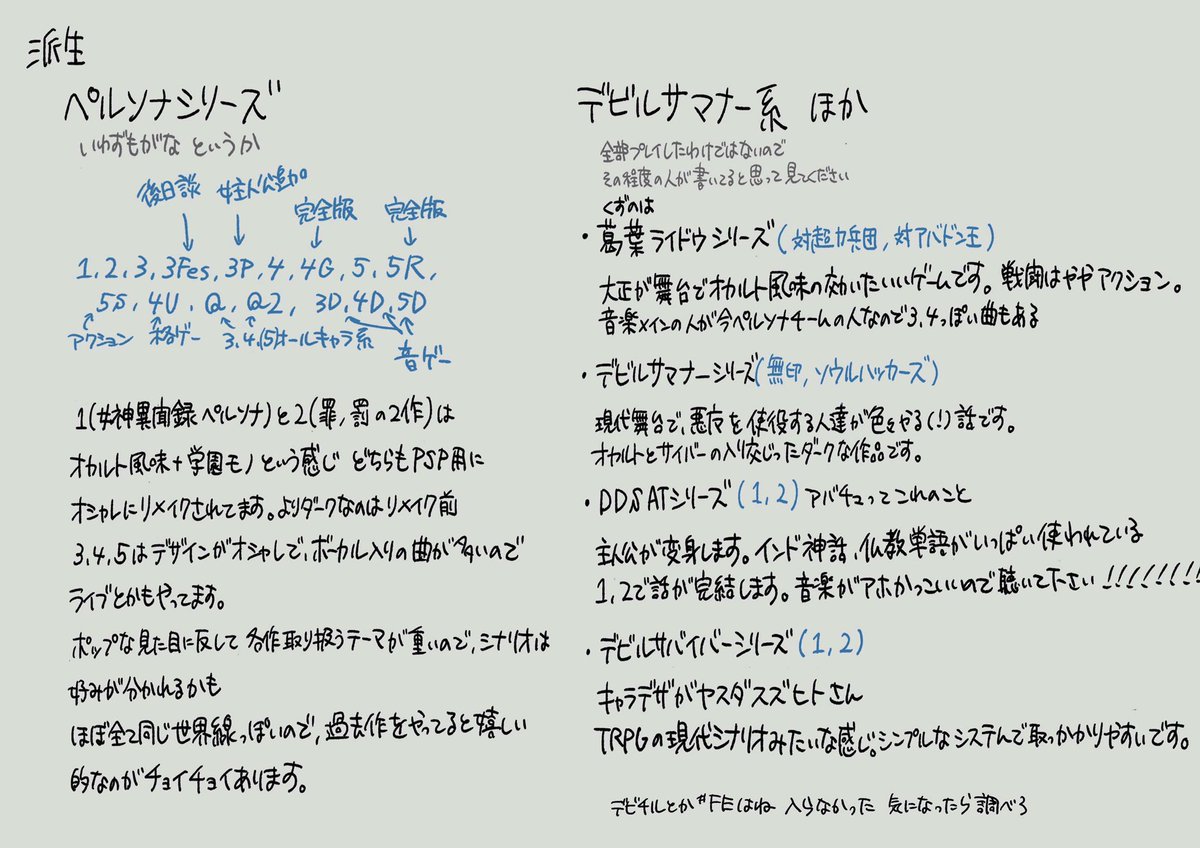 派生
ペルソナシリーズ
いわずもがな というか
後日談 女主人公追加
完全版 完全版
1,2,3,3Fes,3P,4,4G,5,5R,
5S,4U,Q,Q2,3D,4D,5D
アクション 格ゲー 3,4,(5)オールキャラ系
音ゲー
1(女神異聞録ペルソナ)と2(罪,罰の2作)は
オカルト風味+学園モノという感じ どちらもPSP用に
オシャレにリメイクされてます。よりダークなのはリメイク前
3,4,5はデザインがオシャレで、ボーカル入りの曲が多いので
ライブとかもやってます。
ポップな見た目に反して各作取り扱うテーマが重いので、シナリオは
好みが分かれるかも
ほぼ全て同じ世界線っぽいので,過去作をやってると嬉しい
的なのがチョイチョイあります。
デビルサマナー系 ほか
全部プレイしたわけではないので
その程度の人が書いてると思って見てください
くずのは
・葛葉ライドウシリーズ(対超力兵団,対アバドン王)
大正が舞台でオカルト風味の効いたいいゲームです。戦闘はややアクション。
音楽メインの人が今ペルソナチームの人なので3,4っぽい曲もある
・デビルサマナーシリーズ(無印,ソウルハッカーズ)
現代舞台で、悪魔を使役する人達が色々やる(!)話です。
オカルトとサイバーの入り交じったダークな作品です。
・DDSATシリーズ(1,2)アバチュってこれのこと
主人公が変身します。インド神話、仏教単語がいっぱい使われている
1,2で話が完結します。音楽がアホかっこいいので聴いて下さい!!!!!!!!
・デビルサバイバーシリーズ(1,2)
キャラデザがヤスダスズヒトさん
TRPGの現代シナリオみたいな感じ。シンプルなシステムで取っかかりやすいです。
デビチルとか#FEはね 入らなかった 気になったら調べろ